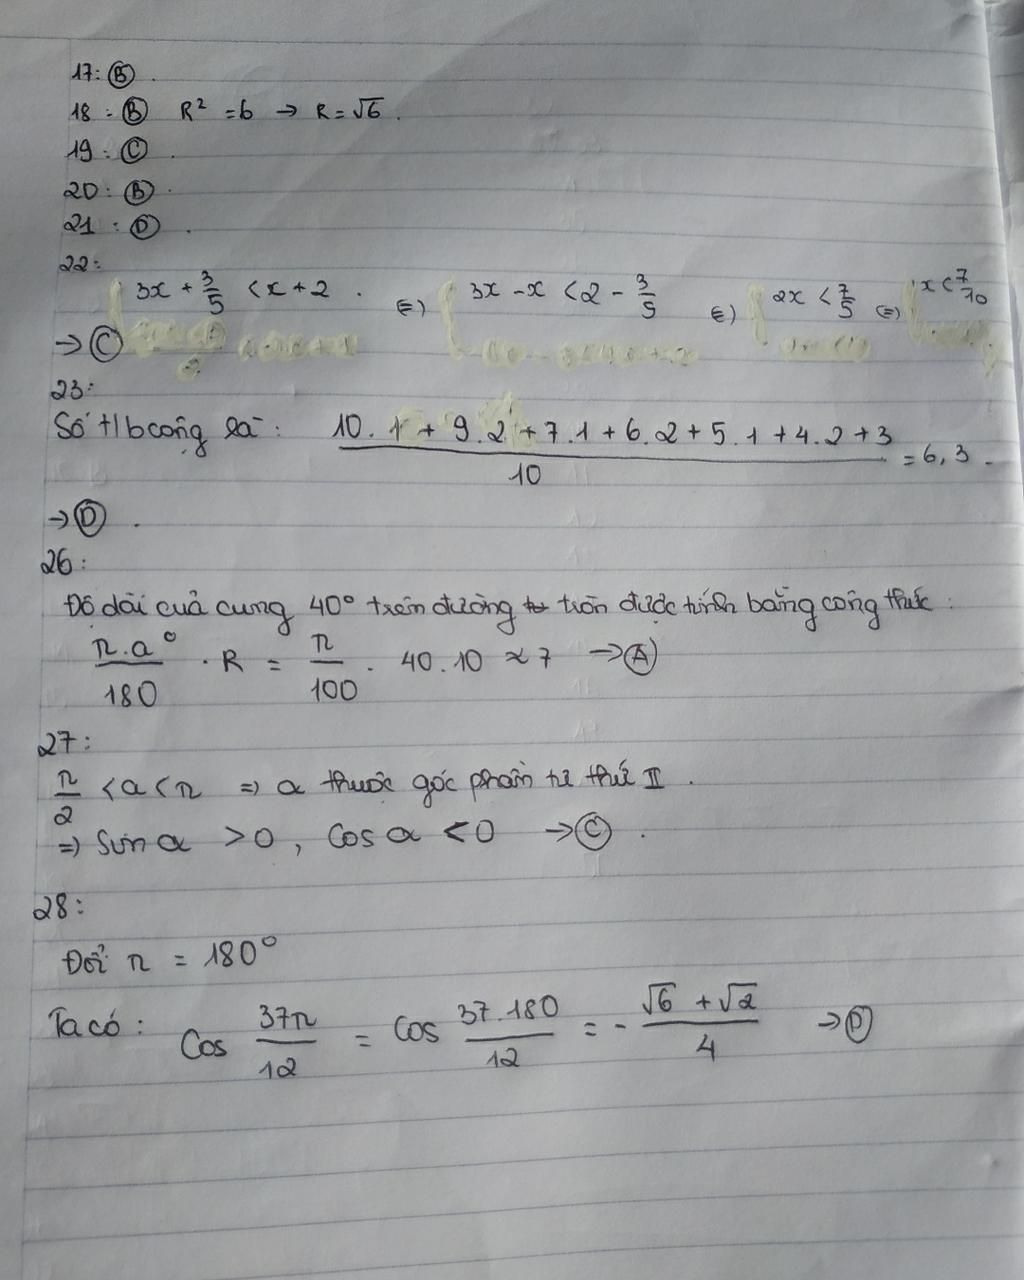 17: B .
18: B R² = 6 → R = √6 .
19: C .
20: B .
21: D .
22:
3x + 3/5 < x + 2 . (=) 3x - x < 2 - 3/5 (=) 2x < 7/5 (=) x < 7/10
→ C
23:
Số t/b cộng là : (10. 1 + 9. 2 + 7. 1 + 6. 2 + 5. 1 + 4. 2 + 3)/10 = 6,3 .
→ D .
26:
Độ dài của cung 40° trên đường tròn được tính bằng công thức :
(π.a°)/180 . R = π/100 . 40.10 ≈ 7 → A
27:
π/2 < a < π => a thuộc góc phần tư thứ II .
=> Sin α > 0 , Cos α < 0 → C .
28:
Đổi π = 180°
Ta có : Cos 37π/12 = Cos (37.180)/12 = - (√6 + √2)/4 → D